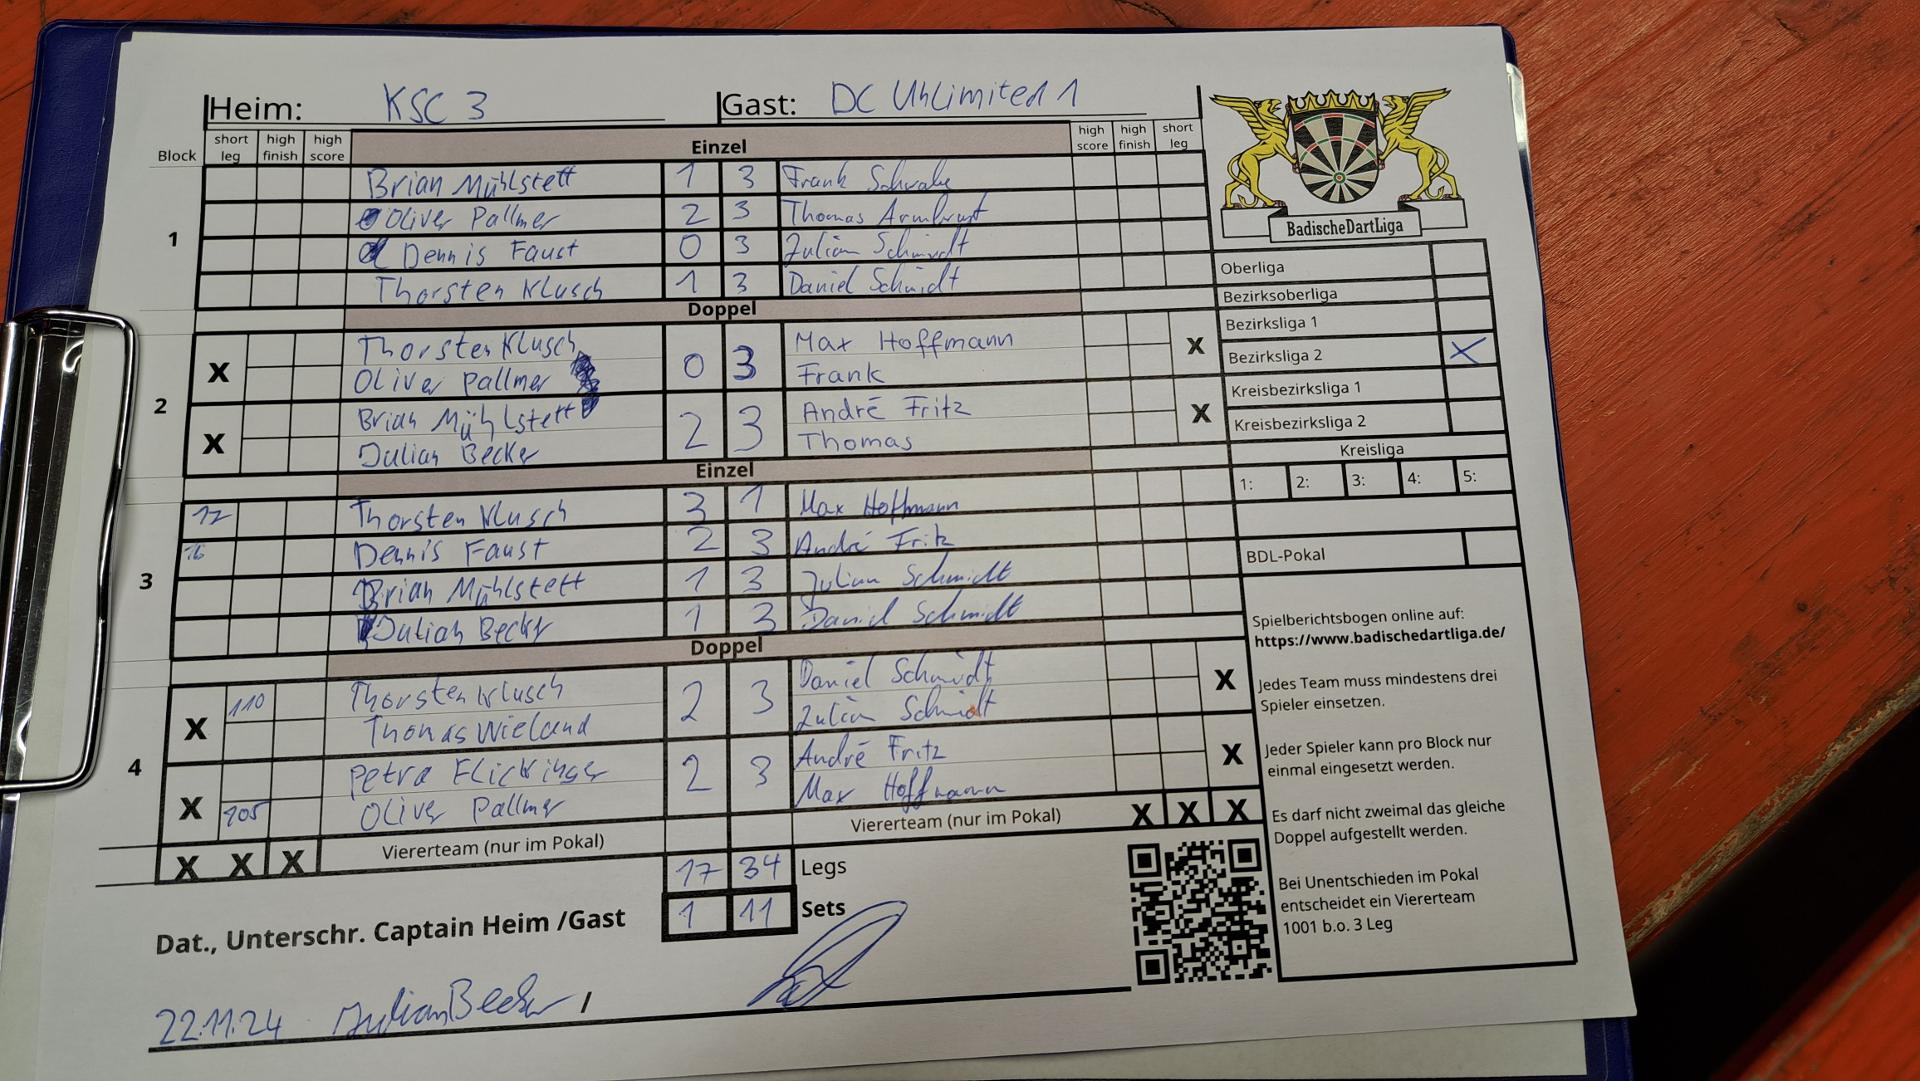 Heim: KSC 3 Gast: DC Unlimited 1
Block short leg high finish high score Einzel high score high finish short leg
1
Brian Mühlstett 1 3 Frank Schwabe
Oliver Pallmer 2 3 Thomas Armbrust
Dennis Faust 0 3 Julian Schmidt
Thorsten Klusch 1 3 Daniel Schmidt
Doppel
2
X Thorsten Klusch 0 3 Max Hoffmann X
Oliver Pallmer Frank
X Brian Mühlstett 2 3 André Fritz X
Julian Becker Thomas
Einzel
3
17 Thorsten Klusch 3 1 Max Hoffmann
16 Dennis Faust 2 3 André Fritz
Brian Mühlstett 1 3 Julian Schmidt
Julian Becker 1 3 Daniel Schmidt
Doppel
4
X 110 Thorsten Klusch 2 3 Daniel Schmidt X
Thomas Wieland Julian Schmidt
X Petra Flickinger 2 3 André Fritz X
105 Oliver Pallmer Max Hoffmann
X X X Viererteam (nur im Pokal) Viererteam (nur im Pokal) X X X
17 34 Legs
1 11 Sets
Dat., Unterschr. Captain Heim /Gast
22.11.24 Julian Becker /
BadischeDartLiga
Oberliga
Bezirksoberliga
Bezirksliga 1
Bezirksliga 2 X
Kreisbezirksliga 1
Kreisbezirksliga 2
Kreisliga
1: 2: 3: 4: 5:
BDL-Pokal
Spielberichtsbogen online auf:
https://www.badischedartliga.de/
Jedes Team muss mindestens drei
Spieler einsetzen.
Jeder Spieler kann pro Block nur
einmal eingesetzt werden.
Es darf nicht zweimal das gleiche
Doppel aufgestellt werden.
Bei Unentschieden im Pokal
entscheidet ein Viererteam
1001 b.o. 3 Leg